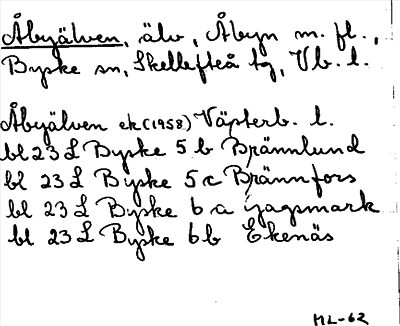 Åbyälven, älv, Åbyn m. fl.,
Byske sn, Skellefteå tg, Vb. l.
Åbyälven ek (1958) Västerb. l.
bl 23 L Byske 5 b Brännlund
bl 23 L Byske 5 c Brännfors
bl 23 L Byske 6 a Jagsmark
bl 23 L Byske 6 b Ekenäs
ML-62